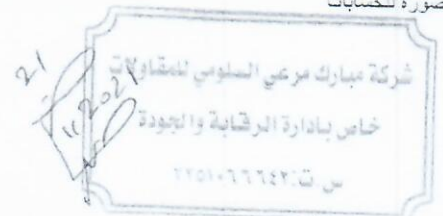 صورة للحسابات
شركة مبارك مرعي السلومي للمقاولات
خاص بادارة الرقابة والجودة
س.ت: ٢٢٥١٠٦٦٦٤٢
21
11/2021